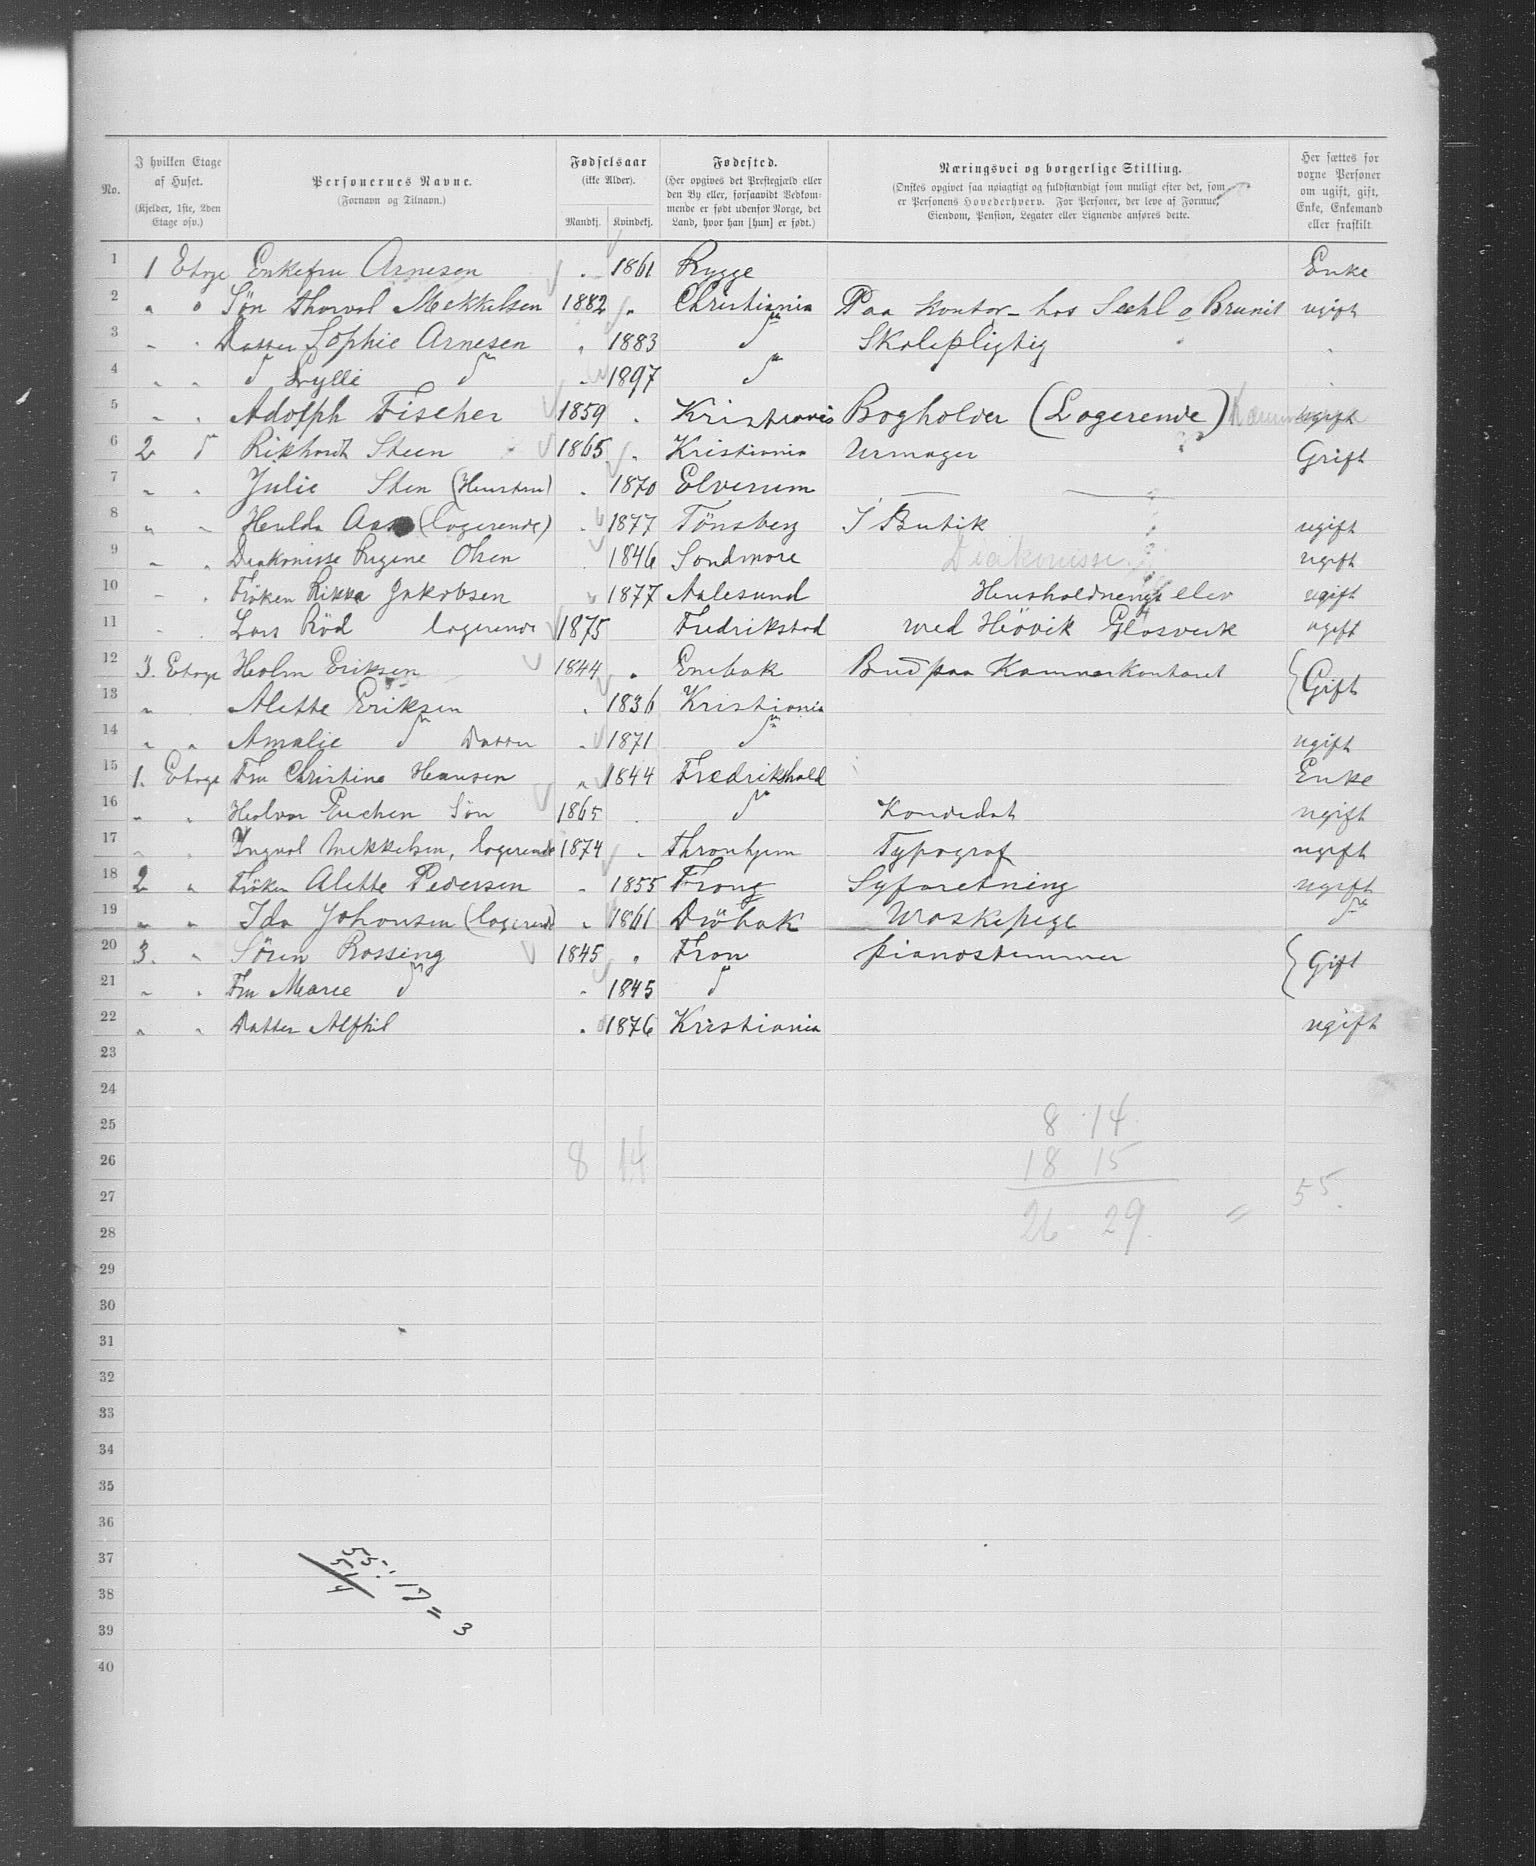 No. | I hvilken Etage af Huset. (Kjelder, 1ste, 2den Etage osv.) | Personernes Navne. (Fornavn og Tilnavn.) | Fødselsaar (ikke Alder). Mandkj. Kvindekj. | Fødested. (Her opgives det Prestegjæld eller den By eller, forsaavidt Vedkommende er født udenfor Norge, det Land, hvor han [hun] er født.) | Næringsvei og borgerlige Stilling. (Ønskes opgivet saa nøiagtigt og fuldstændigt som muligt efter det, som er Personens Hovederhverv. For Personer, der leve af Formue, Eiendom, Pension, Legater eller Lignende anføres dette.) | Her sættes for voxne Personer om ugift, gift, Enke, Enkemand eller fraskilt
1 1 Etage Enkefru Arnesen " 1861 Rygge Enke
2 " o Søn Thorval Mekkelsen 1882 " Christiania Paa Kontor hos o Brunil ugift
3 " " Datter Sophie Arnesen " 1883 do Skolepligtig "
4 " " do do " 1897 do
5 " " Adolph Fischer 1859 " Kristiania Bogholder (Logerende) ugift
6 2 do Rikhardt Steen 1865 " Kristiania Urmager Gift
7 " " Julie Sten (Hustru) " 1870 Elverum
8 " " Hulda Aas (logerende) " 1877 Tönsberg I Butik ugift
9 " " Diakonisse Olsen 1846 Sondmøre Diakonisse ugift
10 " " Fröken Rikka Jakobsen " 1877 Aalesund Husholdnings elev ugift
11 " " Lars Röd logerende 1875 Fredrikstad ved Hövik Glasverk ugift
12 3. Etage Holm Eriksen 1844 " Enebak Bud paa Kammerkontoret } Gift
13 " " Alette Eriksen " 1836 Kristiania
14 " " Amalie do Datter " 1871 do ugift
15 1. Etage Fru Christine Hansen " 1844 Fredrikshald Enke
16 " " Halvor Søn 1865 " do Kandidat ugift
17 " " Ingval Mekkelsen, logerende 1874 " Thronhjem Typograf ugift
18 2 " Fröken Alette Pedersen " 1855 Frong Syforetning ugift
19 " " Ida Johansen (logerende " 1861 Dröbak Vaskepige do
20 3. " Sören Rossing 1845 " Fron pianostemmer } Gift
21 " " Fru Marie do " 1845 do
22 " " Datter Alfhil " 1876 Kristiania ugift
23
24
25 8 14
26 8 14 18 15
27 26 29 = 55.
28
29
30
31
32
33
34
35
36
37
38
39
40
55 : 17 = 3
51
4